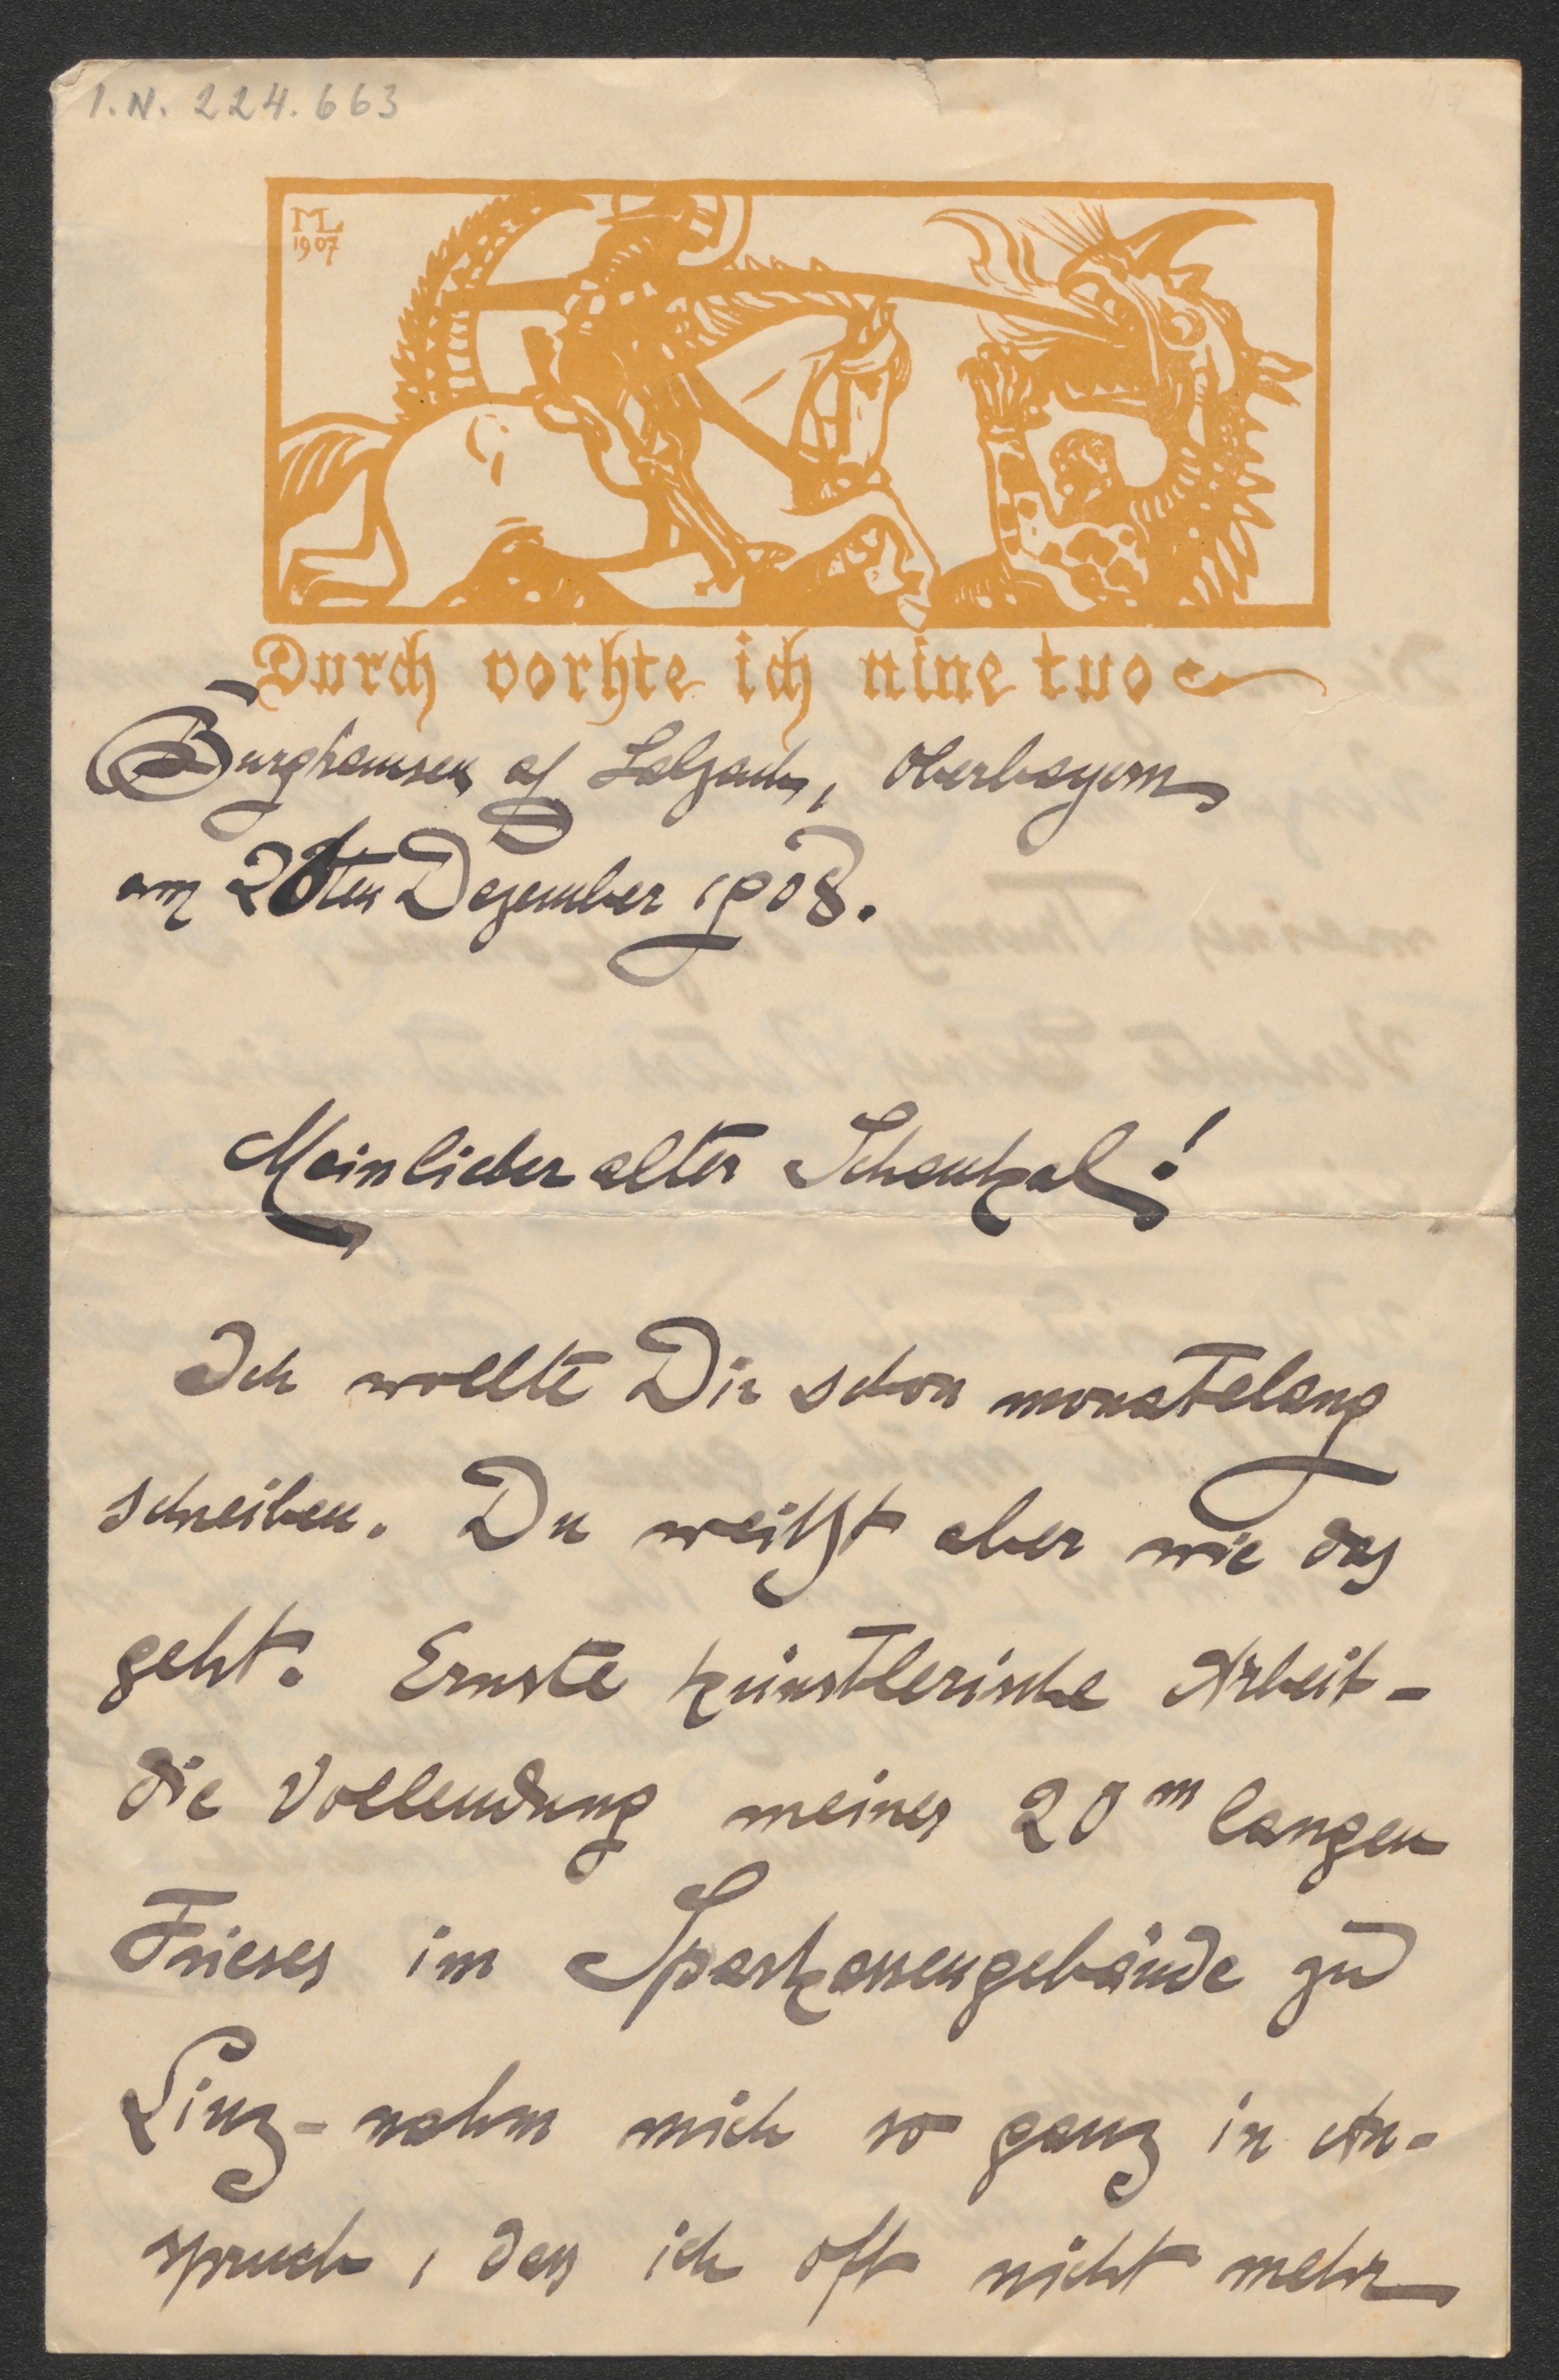 I.N. 224.663
ML
1907
Durch vorhte ich nine tuo
Burghausen a/ Salzach, Oberbayern
am 26ten Dezember 1908.
Mein lieber alter Schaukal!
Ich wollte Dir schon monatelang
schreiben. Du weißt aber wie das
geht. Ernste künstlerische Arbeit –
die Vollendung meines 20 m langen
Frieses im Sparkassengebäude zu
Linz – nahm mich so ganz in An-
spruch, dass ich oft nicht mehr